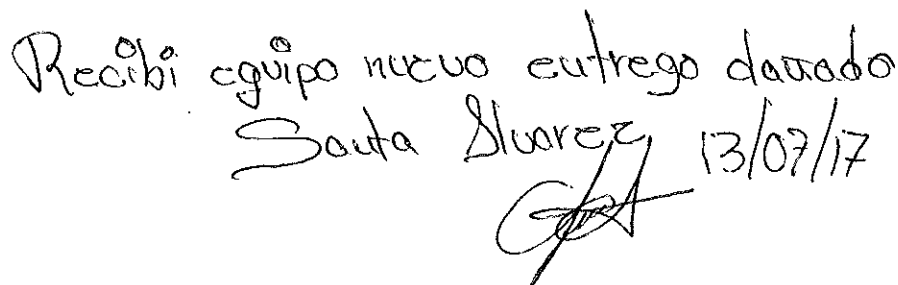 Recibi equipo nuevo entrego dañado
Santa Alvarez 13/07/17